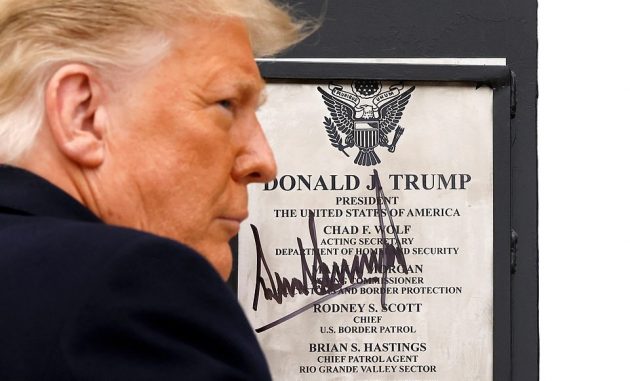 DONALD J. TRUMP
PRESIDENT
THE UNITED STATES OF AMERICA
CHAD F. WOLF
ACTING SECRETARY
DEPARTMENT OF HOMELAND SECURITY
MORGAN
COMMISSIONER
CUSTOMS AND BORDER PROTECTION
RODNEY S. SCOTT
CHIEF
U.S. BORDER PATROL
BRIAN S. HASTINGS
CHIEF PATROL AGENT
RIO GRANDE VALLEY SECTOR